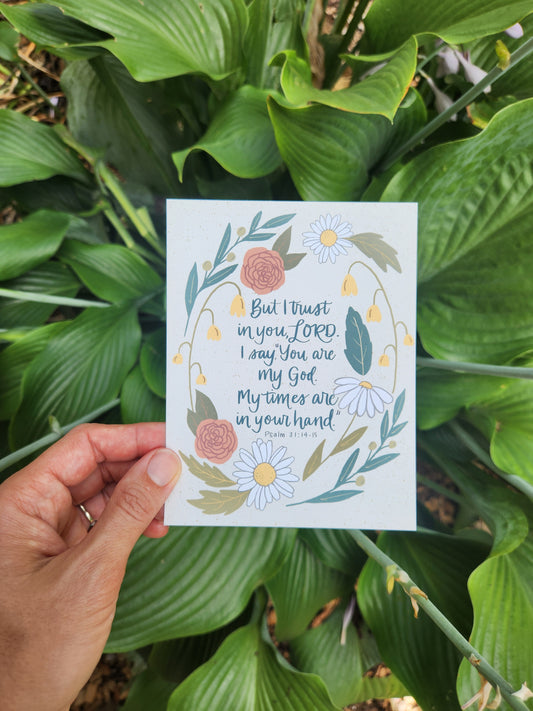 But I trust
in you, LORD.
I say "You are
my God.
My times are
in your hand."
Psalm 31:14-15